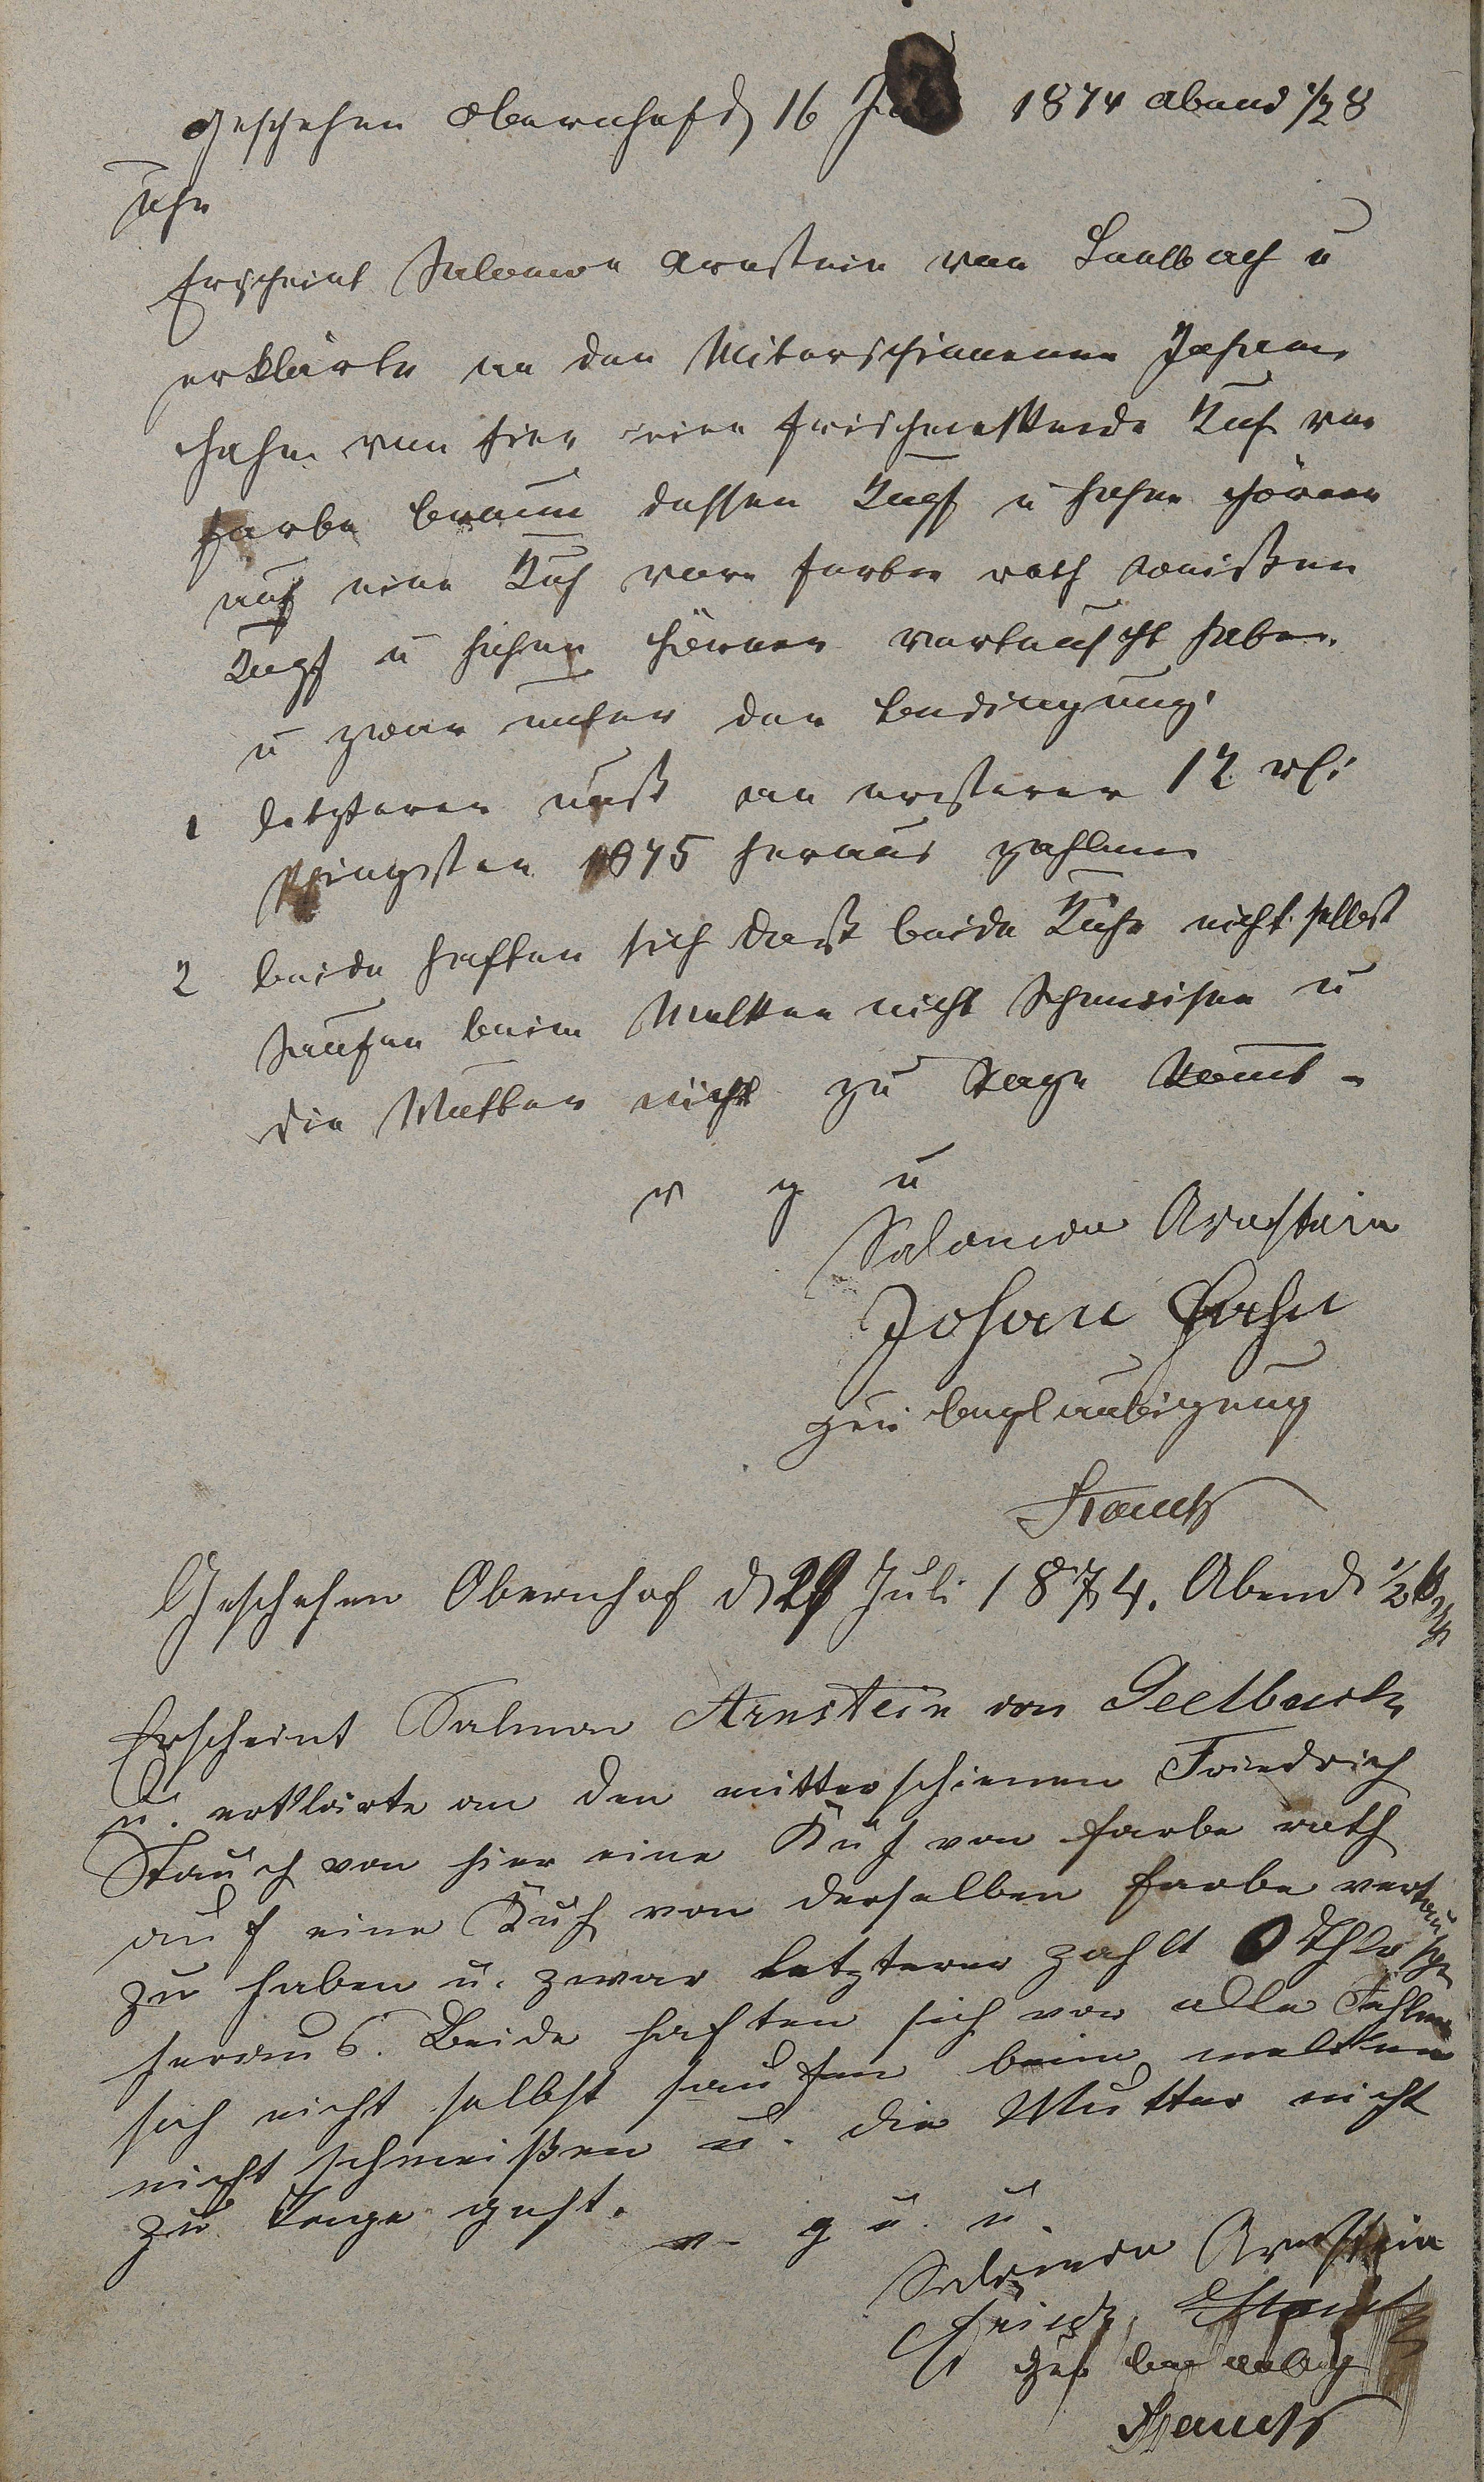 Geschehen Obernhof d 16 1874 abend ½ 8
Uhr
Erscheint Salomon Arnstein von Seelbach u
erklärte an den Miterschienenen Johann
Hahn von hier eine frischmelkende Kuh von
Farbe braun dessen Kopf u hohe Hörner
auf eine Kuh von Farbe roth weißen
Kopf u hohen Hörner vertauscht haben
u zwar unter den bedingung
1 letzterer muß an ersterer 12 rth
Pfingsten 1875 heraus zahlen
2 beide haften sich daß beide Kühe nicht selbst
saufen beim Melken nicht Schmeisen u
die Mutter nicht zu Tage komt -
v g u
Salomon Arnstein
Johan Hahn
zur beglaubigung
Stauch
Geschehen Obernhof d 29 Juli 1874. Abend ½
Erscheint Salmon Arnstein von Seelbach
u. erklärte an den mitterschienen Friedrich
Stauch von hier eine Kuh von Farbe roth
auf eine Kuh von derselben Farbe vertauscht
zu haben u. zwar letzterer zahlt 0 Thlr
heraus. Beide haften sich vor alle Fehler
sich nicht selbst saufen beim melken
nicht schmeißen u. die Mutter nicht
zu Tage geht.
v. g u. u.
Salomon Arnstein
Friedr. Stauch
zur
Stauch